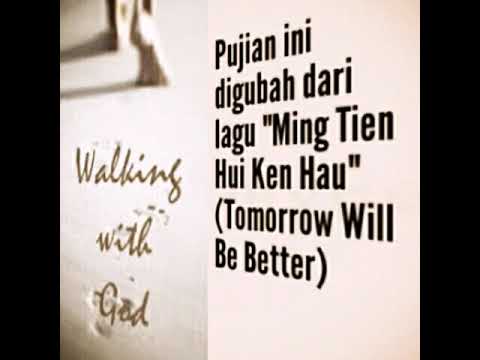 Walking
with
God
Pujian ini
digubah dari
lagu "Ming Tien
Hui Ken Hau"
(Tomorrow Will
Be Better)